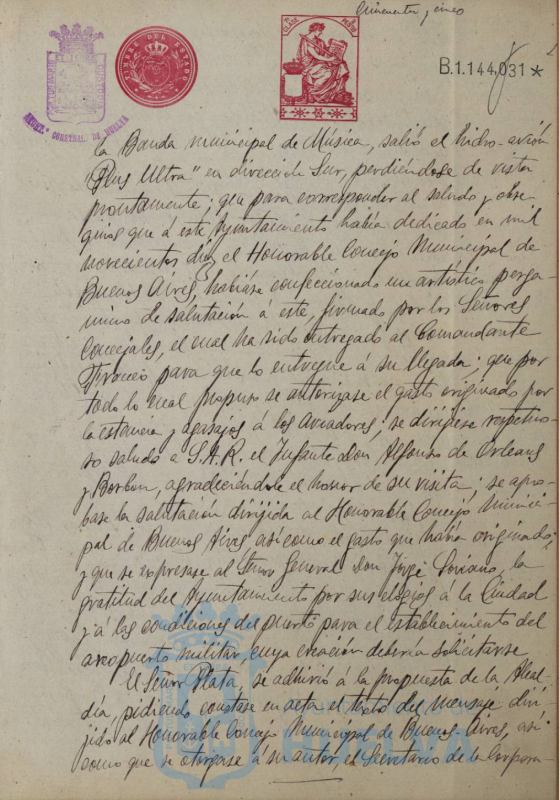 Cincuenta y cinco
TIMBRE DEL ESTADO
CLASE
B.1.144.031 *
MUNICIPAL DE HUELVA
la Banda municipal de Música, salió el hidro-avión
"Plus Ultra" en dirección Sur, perdiéndose de vista
prontamente; que para corresponder al saludo y obse-
quios que á este Ayuntamiento había dedicado en mil
novecientos diez el Honorable Concejo Municipal de
Buenos Aires, habíase confeccionado un artístico perga-
mino de salutación á este, firmado por los Señores
Concejales, el cual ha sido entregado al Comandante
Franco para que lo entregue á su llegada; que por
todo lo cual propuso se autorizase el gasto originado por
la estancia y agasajos á los Aviadores; se dirigiese respetuo-
so saludo a S.A.R. el Infante Don Alfonso de Orleans
y Borbon, agradeciéndole el honor de su visita; se apro-
base la salutación dirijida al Honorable Concejo Munici-
pal de Buenos Aires así como el gasto que había originado;
y que se expresase al Señor General Don Jorge Soriano, la
gratitud del Ayuntamiento por sus elogios á la Ciudad
y á las condiciones del puerto para el establecimiento del
aeropuerto militar, cuya creación debería solicitarse
El Señor Plata, se adhirió á la propuesta de la Alcal-
día, pidiendo constase en acta el texto del mensaje diri-
jido al Honorable Concejo Municipal de Buenos-Aires, así
como que se otorgase á su autor, el Secretario de la Corpora-